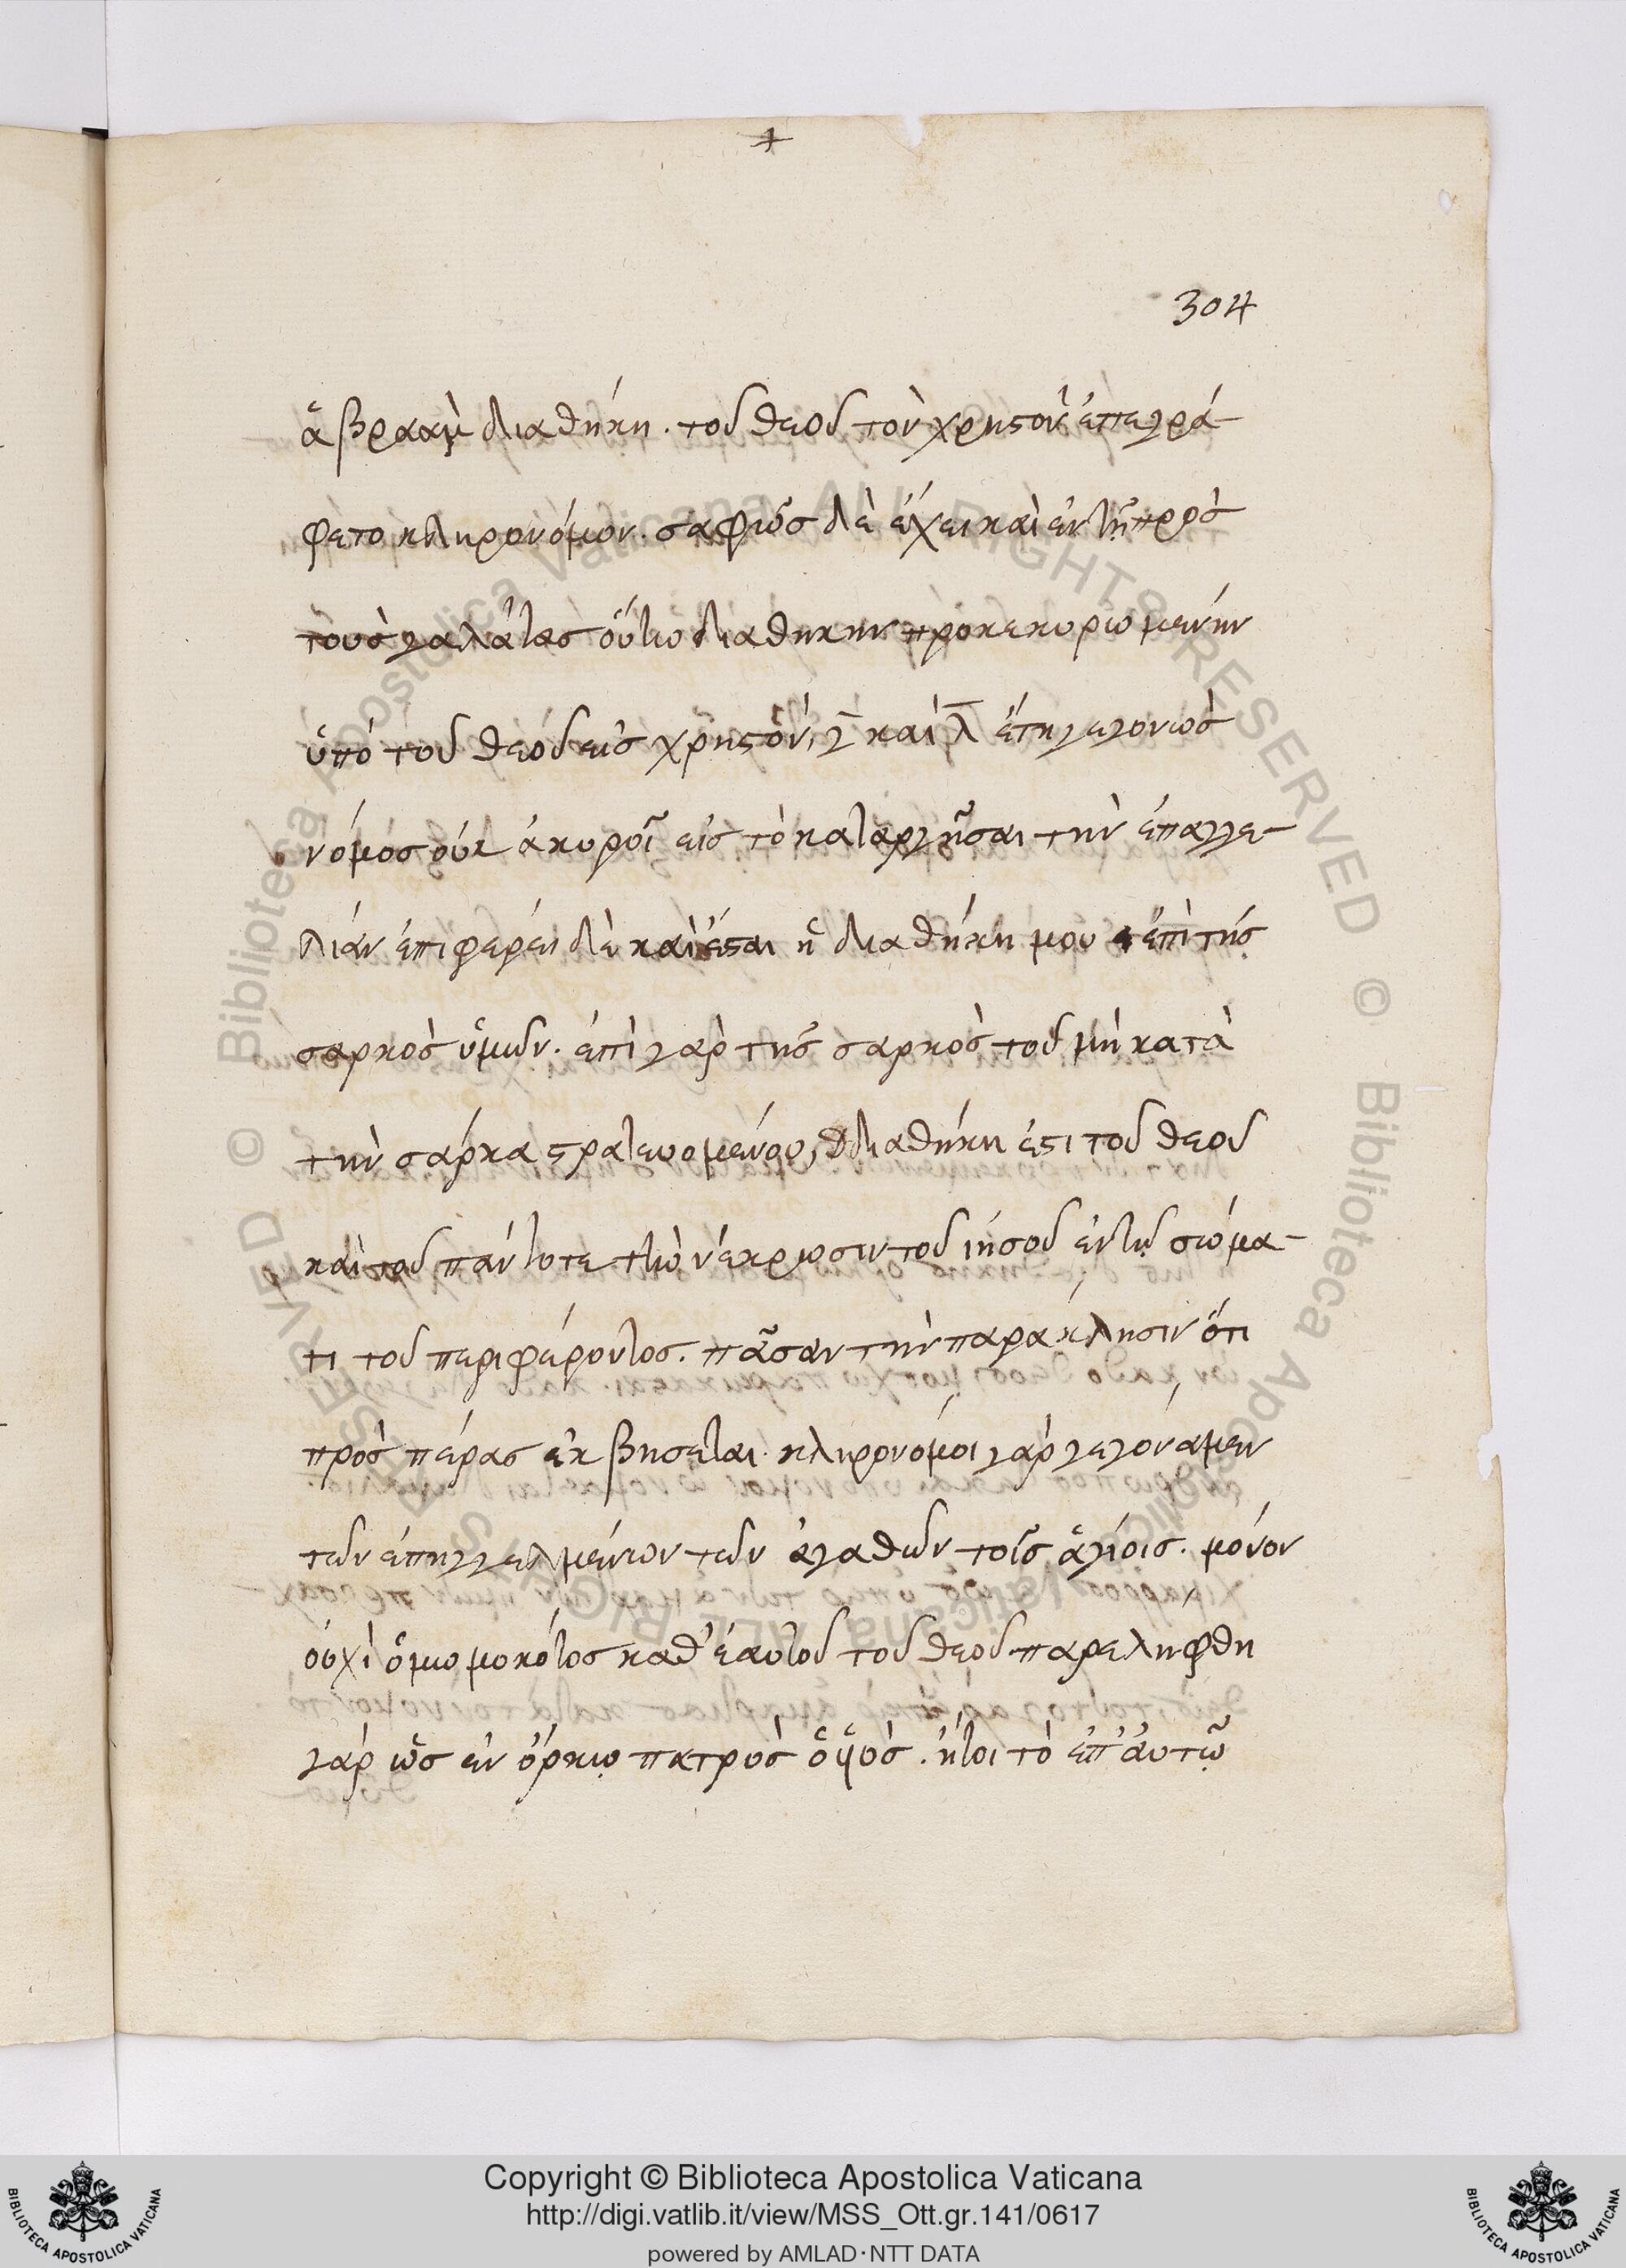 304
ἀβραὰμ διαθήκη. τοῦ θεοῦ τὸν χρηστὸν ἐπεγρά-
φετο κληρονόμον. σαφῶς δὲ ἔχει καὶ ἐν τῇ πρὸς
τοὺς γαλάτας οὕτω διαθηκην προκεκυρωμένην
ὑπὸ τοῦ θεοῦ εἰς χρηστὸν, γ̄ καὶ λ̄ ἔτη γεγονὼς
νόμος οὐκ ἀκυροῖ εἰς τὸ καταργῆσαι τὴν ἐπαγγε-
λιάν ἐπιφερει δὲ καὶ ἔσται ἡ διαθήκη μου ἐπὶ τῆς
σαρκὸς ὑμῶν. ἐπὶ γὰρ τῆς σαρκὸς τοῦ μὴ κατὰ
τὴν σάρκα στρατευομένου, διαθήκη ἐστι τοῦ θεοῦ
καὶ τοῦ πάντοτε τὴν νέκρωσιν τοῦ ιησοῦ ἐν τῷ σώμα-
τι τοῦ περιφέροντος. πᾶσαν τὴν παράκλησιν ὅτι
πρὸς πέρας ἐκβησεται. κληρονόμοι γὰρ γεγόναμεν
τῶν ἐπηγγελμένων τῶν ἀγαθῶν τοῖς ἁγίοις. μόνον
οὐχὶ ὀμωμοκότος καθ' ἑαυτοῦ τοῦ θεοῦ παρεληφθη
γὰρ ὡς ἐν ὅρκῳ πατρὸς ὁ ὑιὸς. ἤτοι τὸ ἐπ' ἀυτῷ
© Biblioteca Apostolica Vaticana ALL RIGHTS RESERVED © Biblioteca Apostolica Vaticana ALL RIGHTS RESERVED
Copyright © Biblioteca Apostolica Vaticana
http://digi.vatlib.it/view/MSS_Ott.gr.141/0617
powered by AMLAD·NTT DATA
BIBLIOTECA APOSTOLICA VATICANA
BIBLIOTECA APOSTOLICA VATICANA